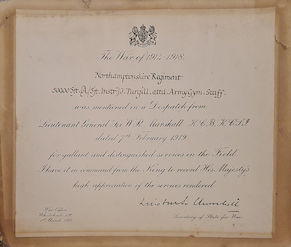 The War of 1914-1918.
Northamptonshire Regiment
Sjt. Instr. W. Turgill, attd. Army Gym. Staff.
was mentioned in a Despatch from
Lieutenant General Sir W. R. Marshall K.C.B. K.C.S.I.
dated 7th February 1919
for gallant and distinguished services in the Field.
I have it in command from the King to record His Majesty's
high appreciation of the services rendered.
Winston S. Churchill
War Office
Whitehall, S.W.
Secretary of State for War